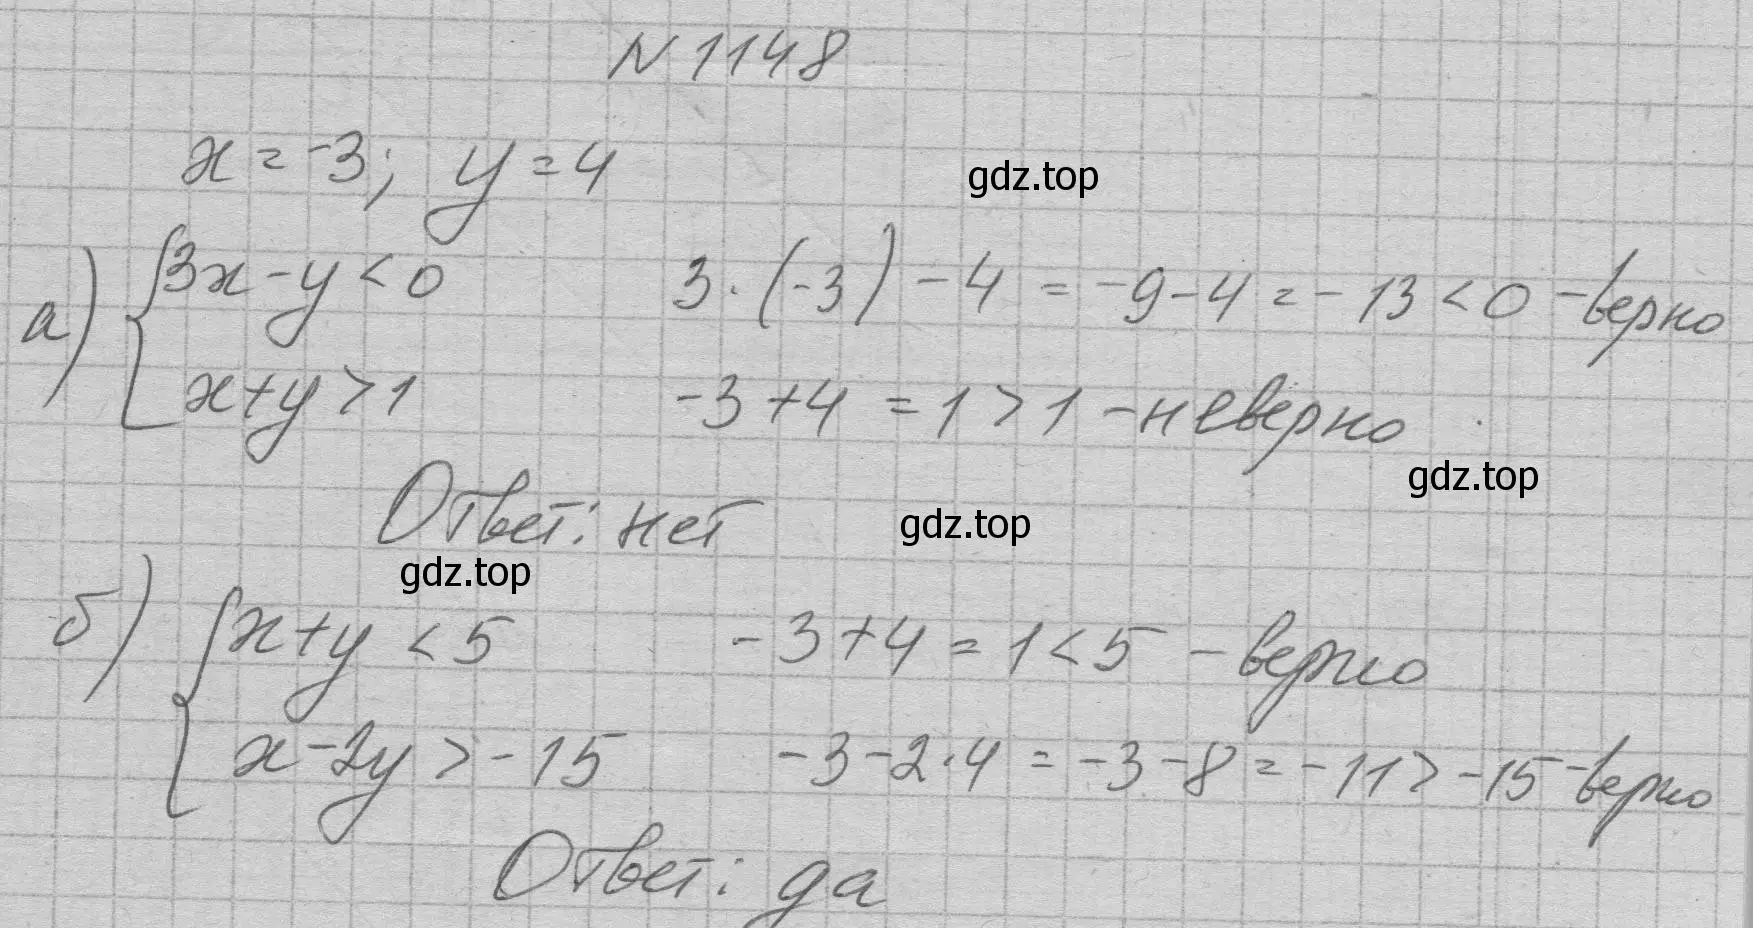 N 1148
x = -3; y = 4
gdz.top
а) { 3x - y < 0   3 · (-3) - 4 = -9 - 4 = -13 < 0 - верно
x + y > 1   -3 + 4 = 1 > 1 - неверно
gdz.top
Ответ: нет
gdz.top
gdz.top
б) { x + y < 5   -3 + 4 = 1 < 5 - верно
x - 2y > -15   -3 - 2 · 4 = -3 - 8 = -11 > -15 - верно
Ответ: да